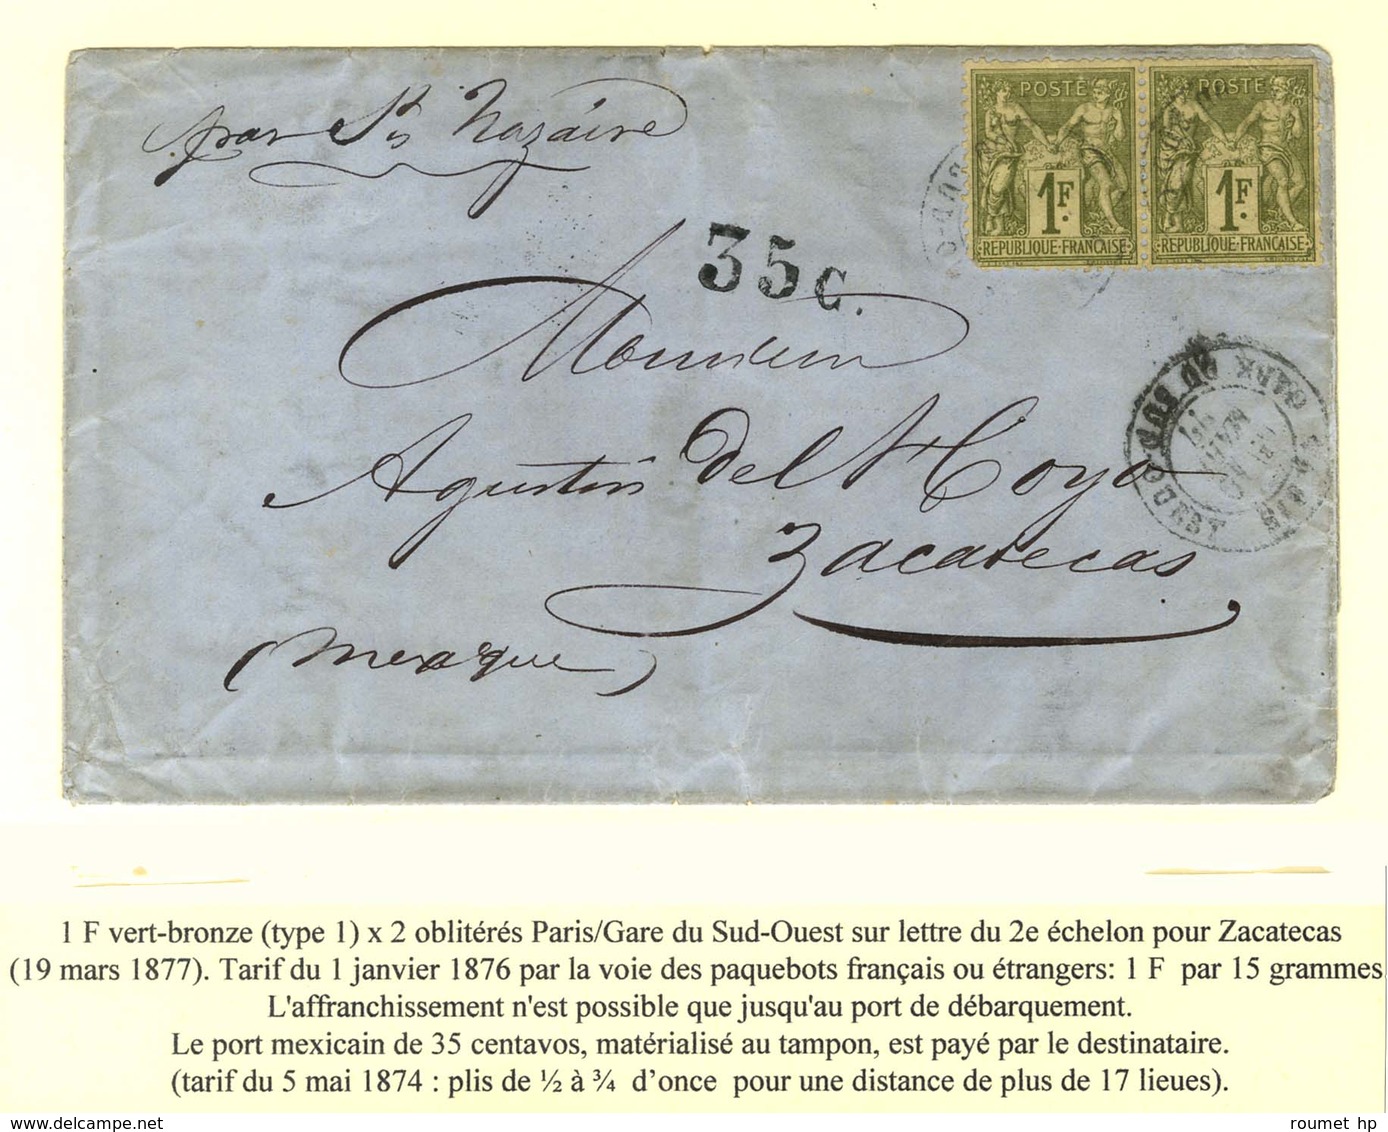 par St Nazaire
POSTE
1F.
REPUBLIQUE-FRANCAISE
POSTE
1F.
REPUBLIQUE-FRANCAISE
35c.
Monsieur
Agustin del Hoyo
Zacatecas
(Mexique)
PARIS GARE DU SUD-OUEST
1 F vert-bronze (type 1) x 2 oblitérés Paris/Gare du Sud-Ouest sur lettre du 2e échelon pour Zacatecas
(19 mars 1877). Tarif du 1 janvier 1876 par la voie des paquebots français ou étrangers: 1 F par 15 grammes.
L'affranchissement n'est possible que jusqu'au port de débarquement.
Le port mexicain de 35 centavos, matérialisé au tampon, est payé par le destinataire.
(tarif du 5 mai 1874 : plis de ½ à ¾ d’once pour une distance de plus de 17 lieues).
roumet hp